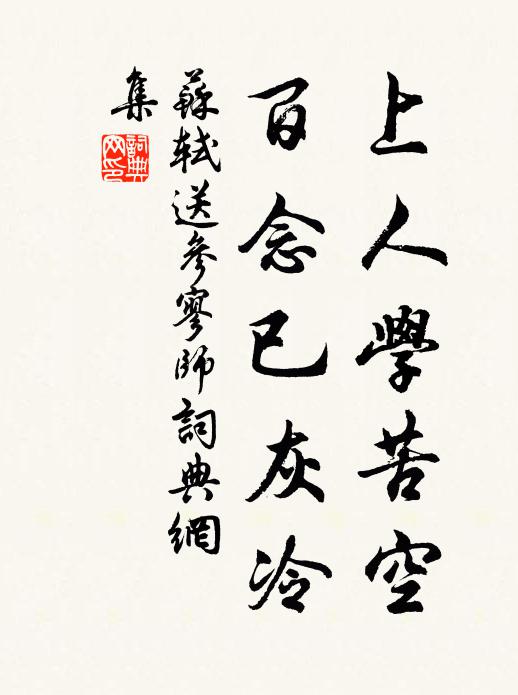 上人學苦空
百念已灰冷
蘇軾送參寥師詞典網
集
詞典
网印